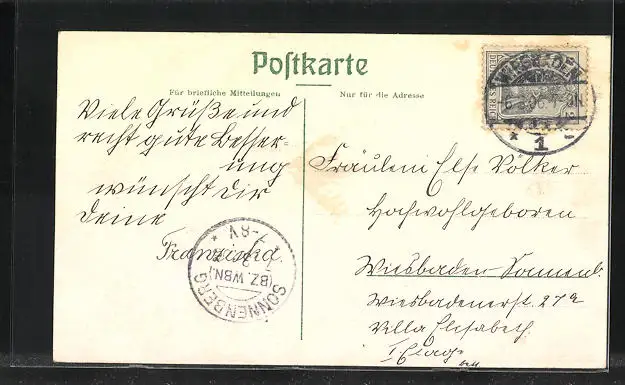 Postkarte
Für briefliche Mitteilungen
Nur für die Adresse
Viele Grüße und
recht gute Besser=
ung
wünscht dir
deine
Franziska
Fräulein Else Völker
Hochwohlgeboren
Wiesbaden Sonnenb.
Wiesbadenerst. 27a
Villa Elisabeth
I Etage
WIESBADEN
* 1
7-8V
(BZ. WBN.)
SONNENBERG